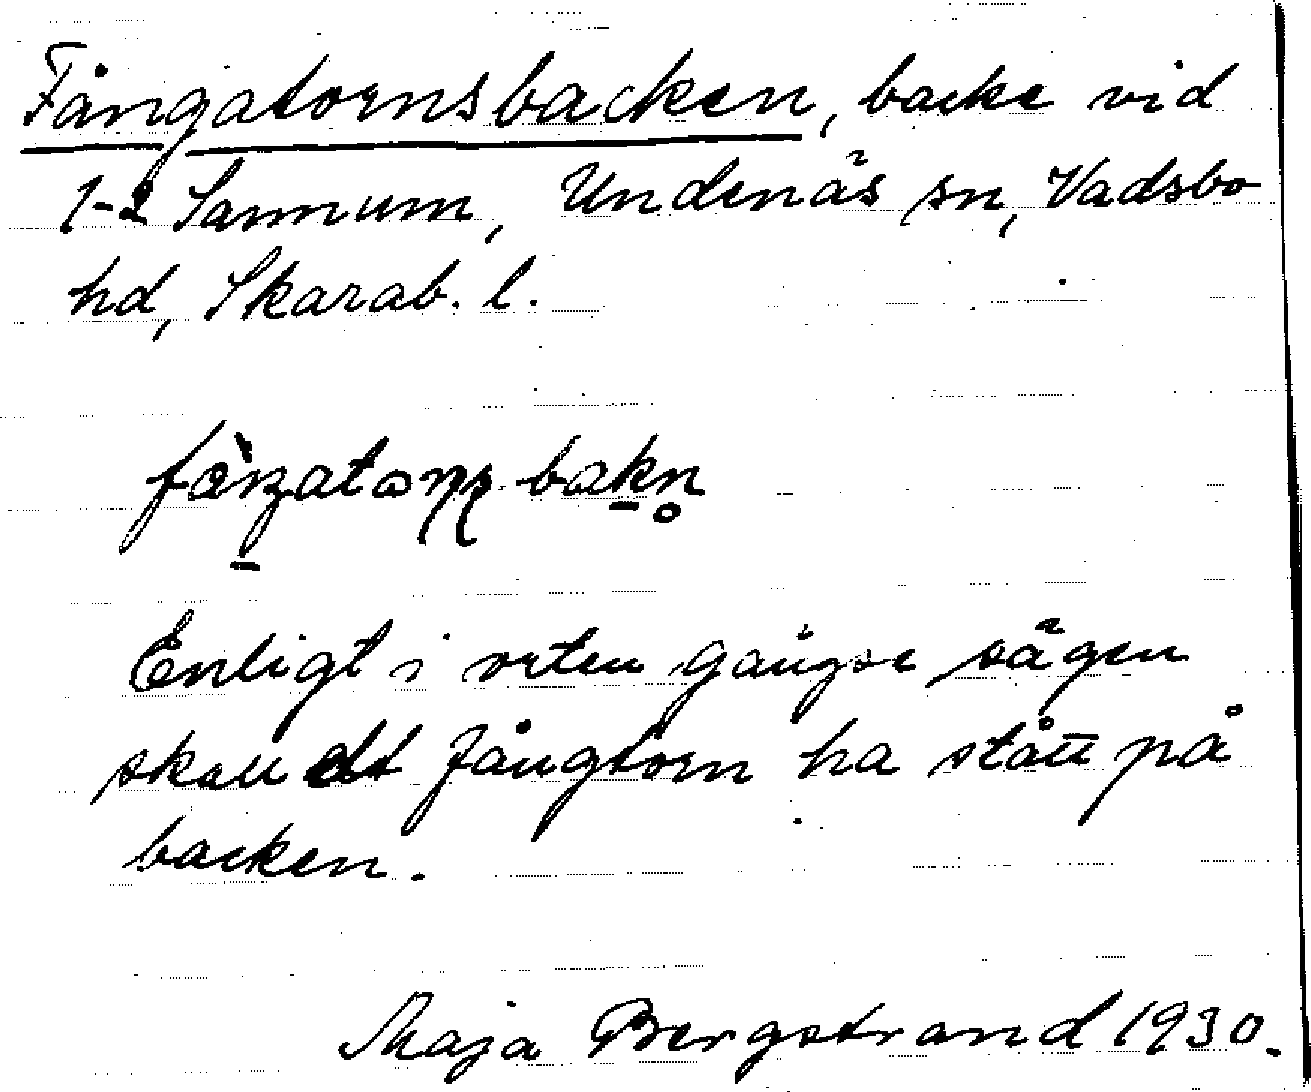 Fångatornsbacken, backe vid
1-2 Sannum, Undenäs sn, Vadsbo
hd, Skarab. l.
Enligt i orten gängse sägen
skall ett fångtorn ha stått på
backen.
Maja Bergstrand 1930.